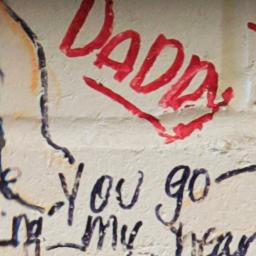 DADDY
you go
my hear